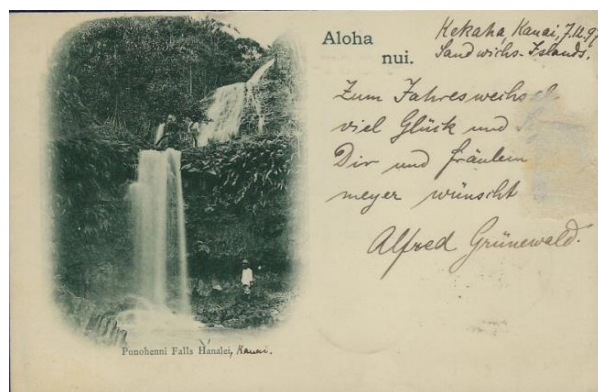 Aloha
nui.
Kekaha, Kauai, 7.12.97
Sandwichs-Islands.
Zum Jahreswechsel
viel Glück und
Dir und fräulein
meyer wünscht
Alfred Grünewald.
Punohenni Falls Hanalei, Kauai.